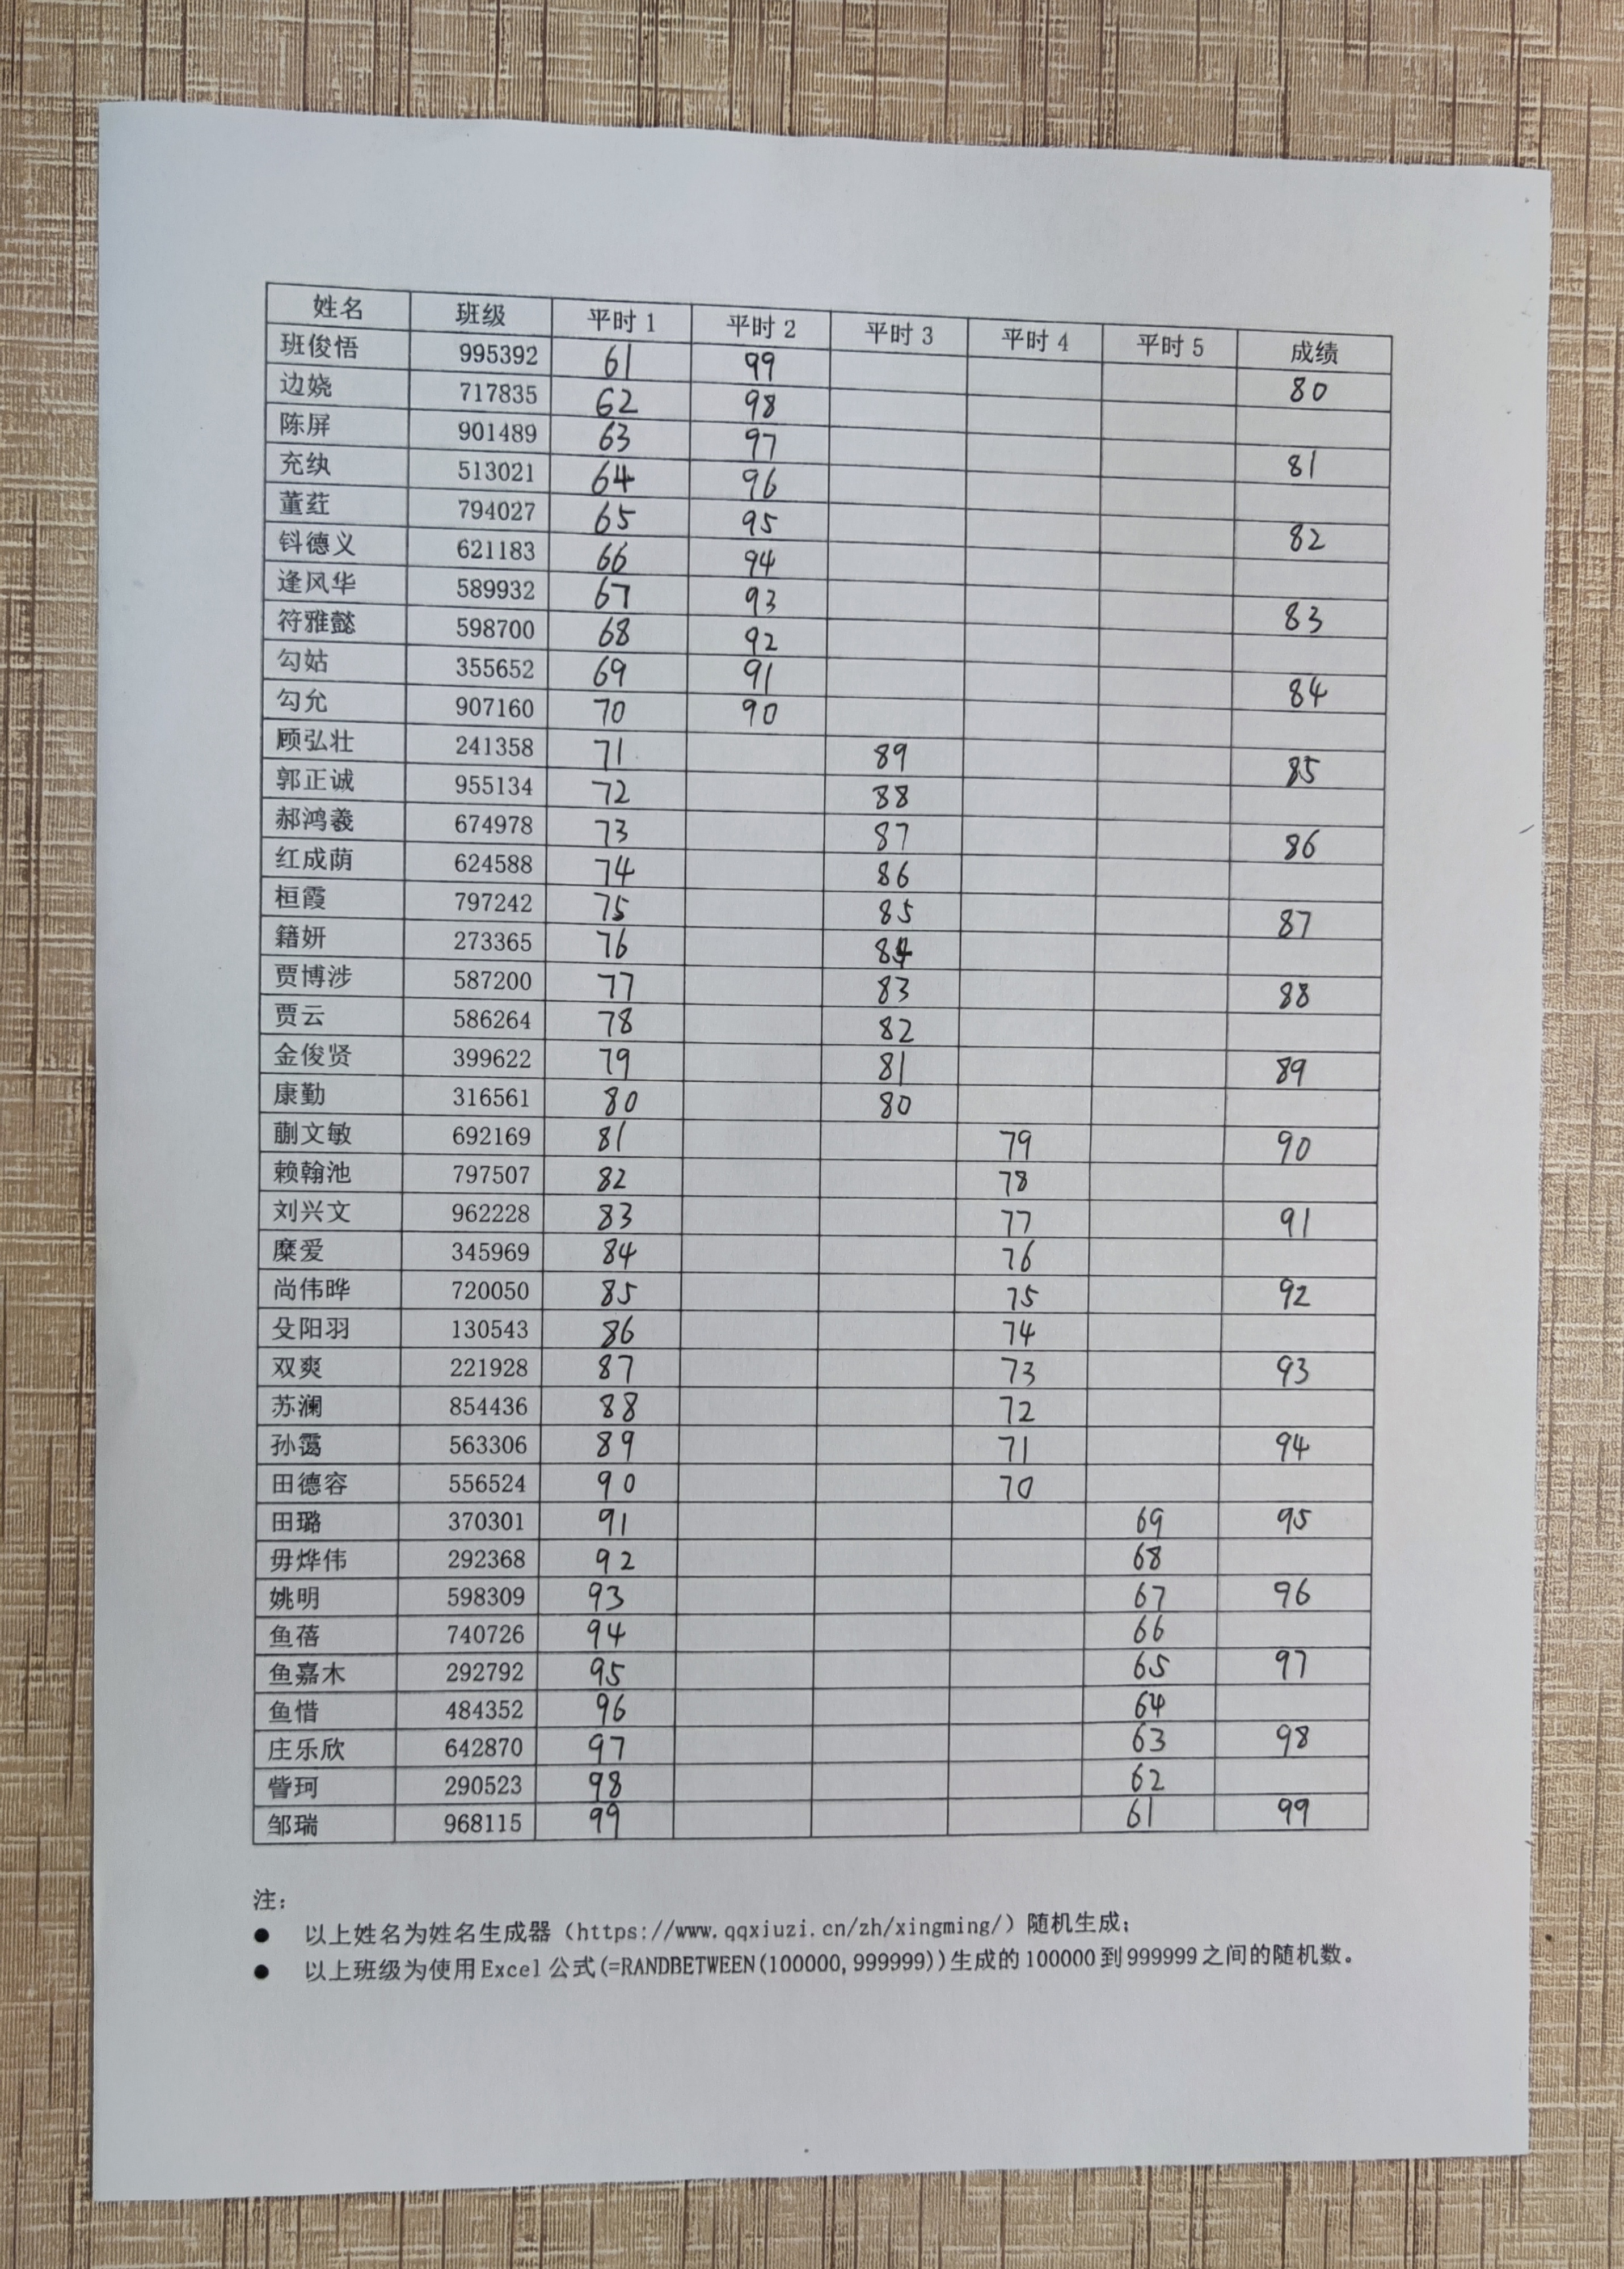 姓名 班级 平时1 平时2 平时3 平时4 平时5 成绩
班俊悟 995392 61 99 80
边娆 717835 62 98
陈屏 901489 63 97 81
充纨 513021 64 96
董荭 794027 65 95 82
钭德义 621183 66 94
逄风华 589932 67 93 83
符雅懿 598700 68 92
勾姑 355652 69 91 84
勾允 907160 70 90
顾弘壮 241358 71 89 85
郭正诚 955134 72 88
郝鸿羲 674978 73 87 86
红成荫 624588 74 86
桓霞 797242 75 85 87
籍妍 273365 76 84
贾博涉 587200 77 83 88
贾云 586264 78 82
金俊贤 399622 79 81 89
康勤 316561 80 80
蒯文敏 692169 81 79 90
赖翰池 797507 82 78
刘兴文 962228 83 77 91
糜爱 345969 84 76
尚伟晔 720050 85 75 92
殳阳羽 130543 86 74
双爽 221928 87 73 93
苏澜 854436 88 72
孙霭 563306 89 71 94
田德容 556524 90 70
田璐 370301 91 69 95
毋烨伟 292368 92 68
姚明 598309 93 67 96
鱼蓓 740726 94 66
鱼嘉木 292792 95 65 97
鱼惜 484352 96 64
庄乐欣 642870 97 63 98
訾珂 290523 98 62
邹瑞 968115 99 61 99
注：
● 以上姓名为姓名生成器（https://www.qqxiuzi.cn/zh/xingming/）随机生成；
● 以上班级为使用Excel公式(=RANDBETWEEN(100000,999999))生成的100000到999999之间的随机数。